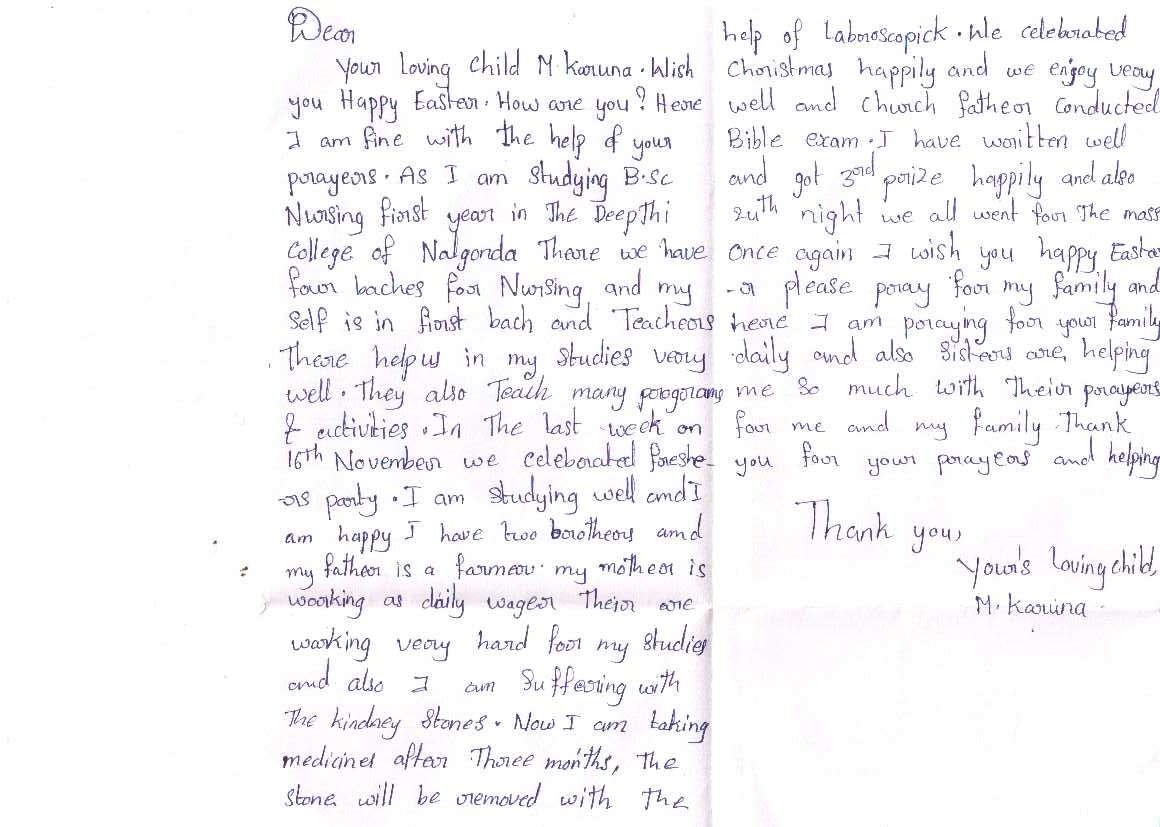 Dear
Your Loving Child M. Karuna. Wish
you Happy Easter. How are you? Here
I am fine with the help of your
prayers. As I am studying B.Sc
Nursing first year in The Deepthi
College of Nalgonda There we have
four baches for Nursing, and my
self is in first bach and Teachers
There help us in my studies very
well. They also Teach many programs
& activities. In The last week on
16th November we celebrated freshe-
-rs party. I am studying well and I
am happy I have two brothers and
my father is a farmer. my mother is
working as daily wager Their are
working very hard for my studies
and also I am Suffering with
The kindney Stones. Now I am taking
medicines after Three months, the
stone will be removed with the
help of Laboroscopick. We celebrated
Christmas happily and we enjoy very
well and church father conducted
Bible exam. I have written well
and got 3rd prize happily and also
24th night we all went for The mass
Once again I wish you happy Easte
-r please pray for my family and
here I am praying for your family
daily and also Sisters are, helping
me so much with Their prayers
for me and my family. Thank
you for your prayers and helping
Thank you,
Your's Loving child,
M. Karuna.